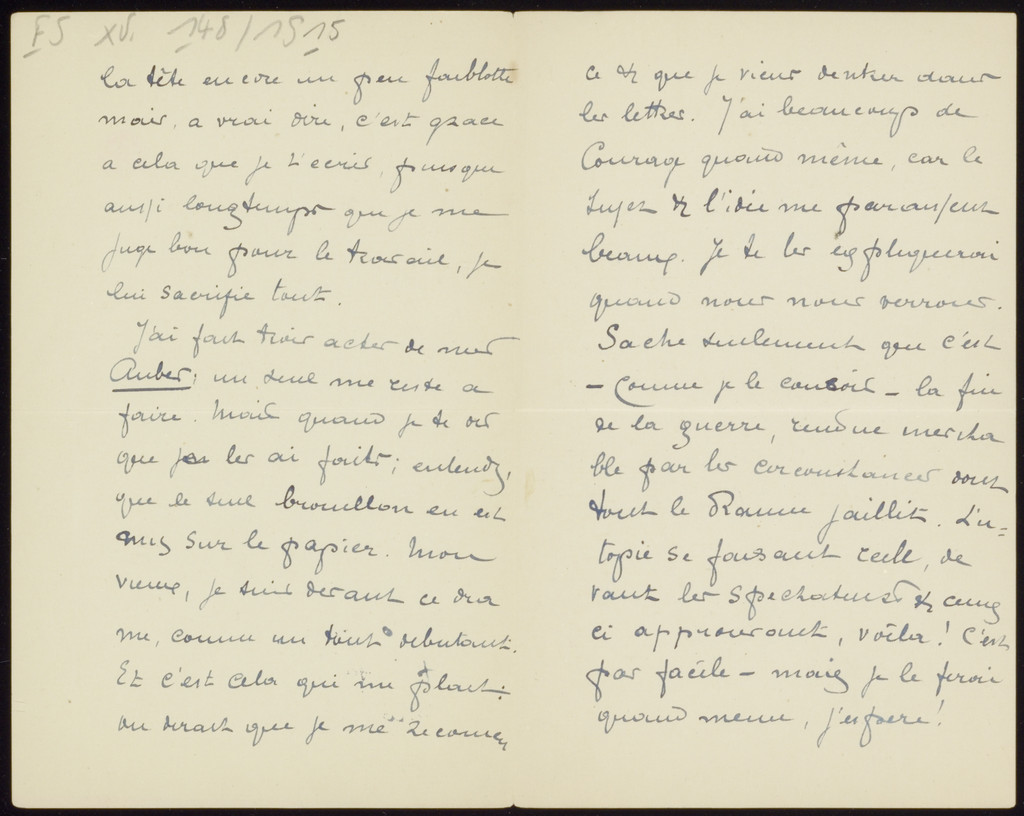 FS XV. 148/1515
la tête encore un peu faiblotte
mais, a vrai dire, c'est grace
a cela que je t'ecris, puisque
aussi longtemps que je me
juge bon pour le travail, je
lui sacrifie tout.
J'ai fait trois actes de mes
Aubes; un seul me reste a
faire. Mais quand je te dis
que je les ai faits; entends,
que le seul brouillon en est
mis sur le papier. Mon
vieux, je suis devant ce dra
me, comme un tout debutant.
Et c'est cela qui me plait:
on dirait que je me recomen
ce & que je viens de entrer dans
les lettres. J'ai beaucoup de
Courage quand même, car le
sujet & l'idée me paraissent
beaux. Je te les expliquerai
quand nous nous verrons.
Sache seulement que c'est
– comme je le conçois – la fin
de la guerre, rendue
ble par les circonstances dont
tout le Drame jaillit. L'u=
topie se faisant réelle, de
vant les spectateurs & ceux
ci approuvant, voila! C'est
pas facile – mais je le ferai
quand meme, j'espere!